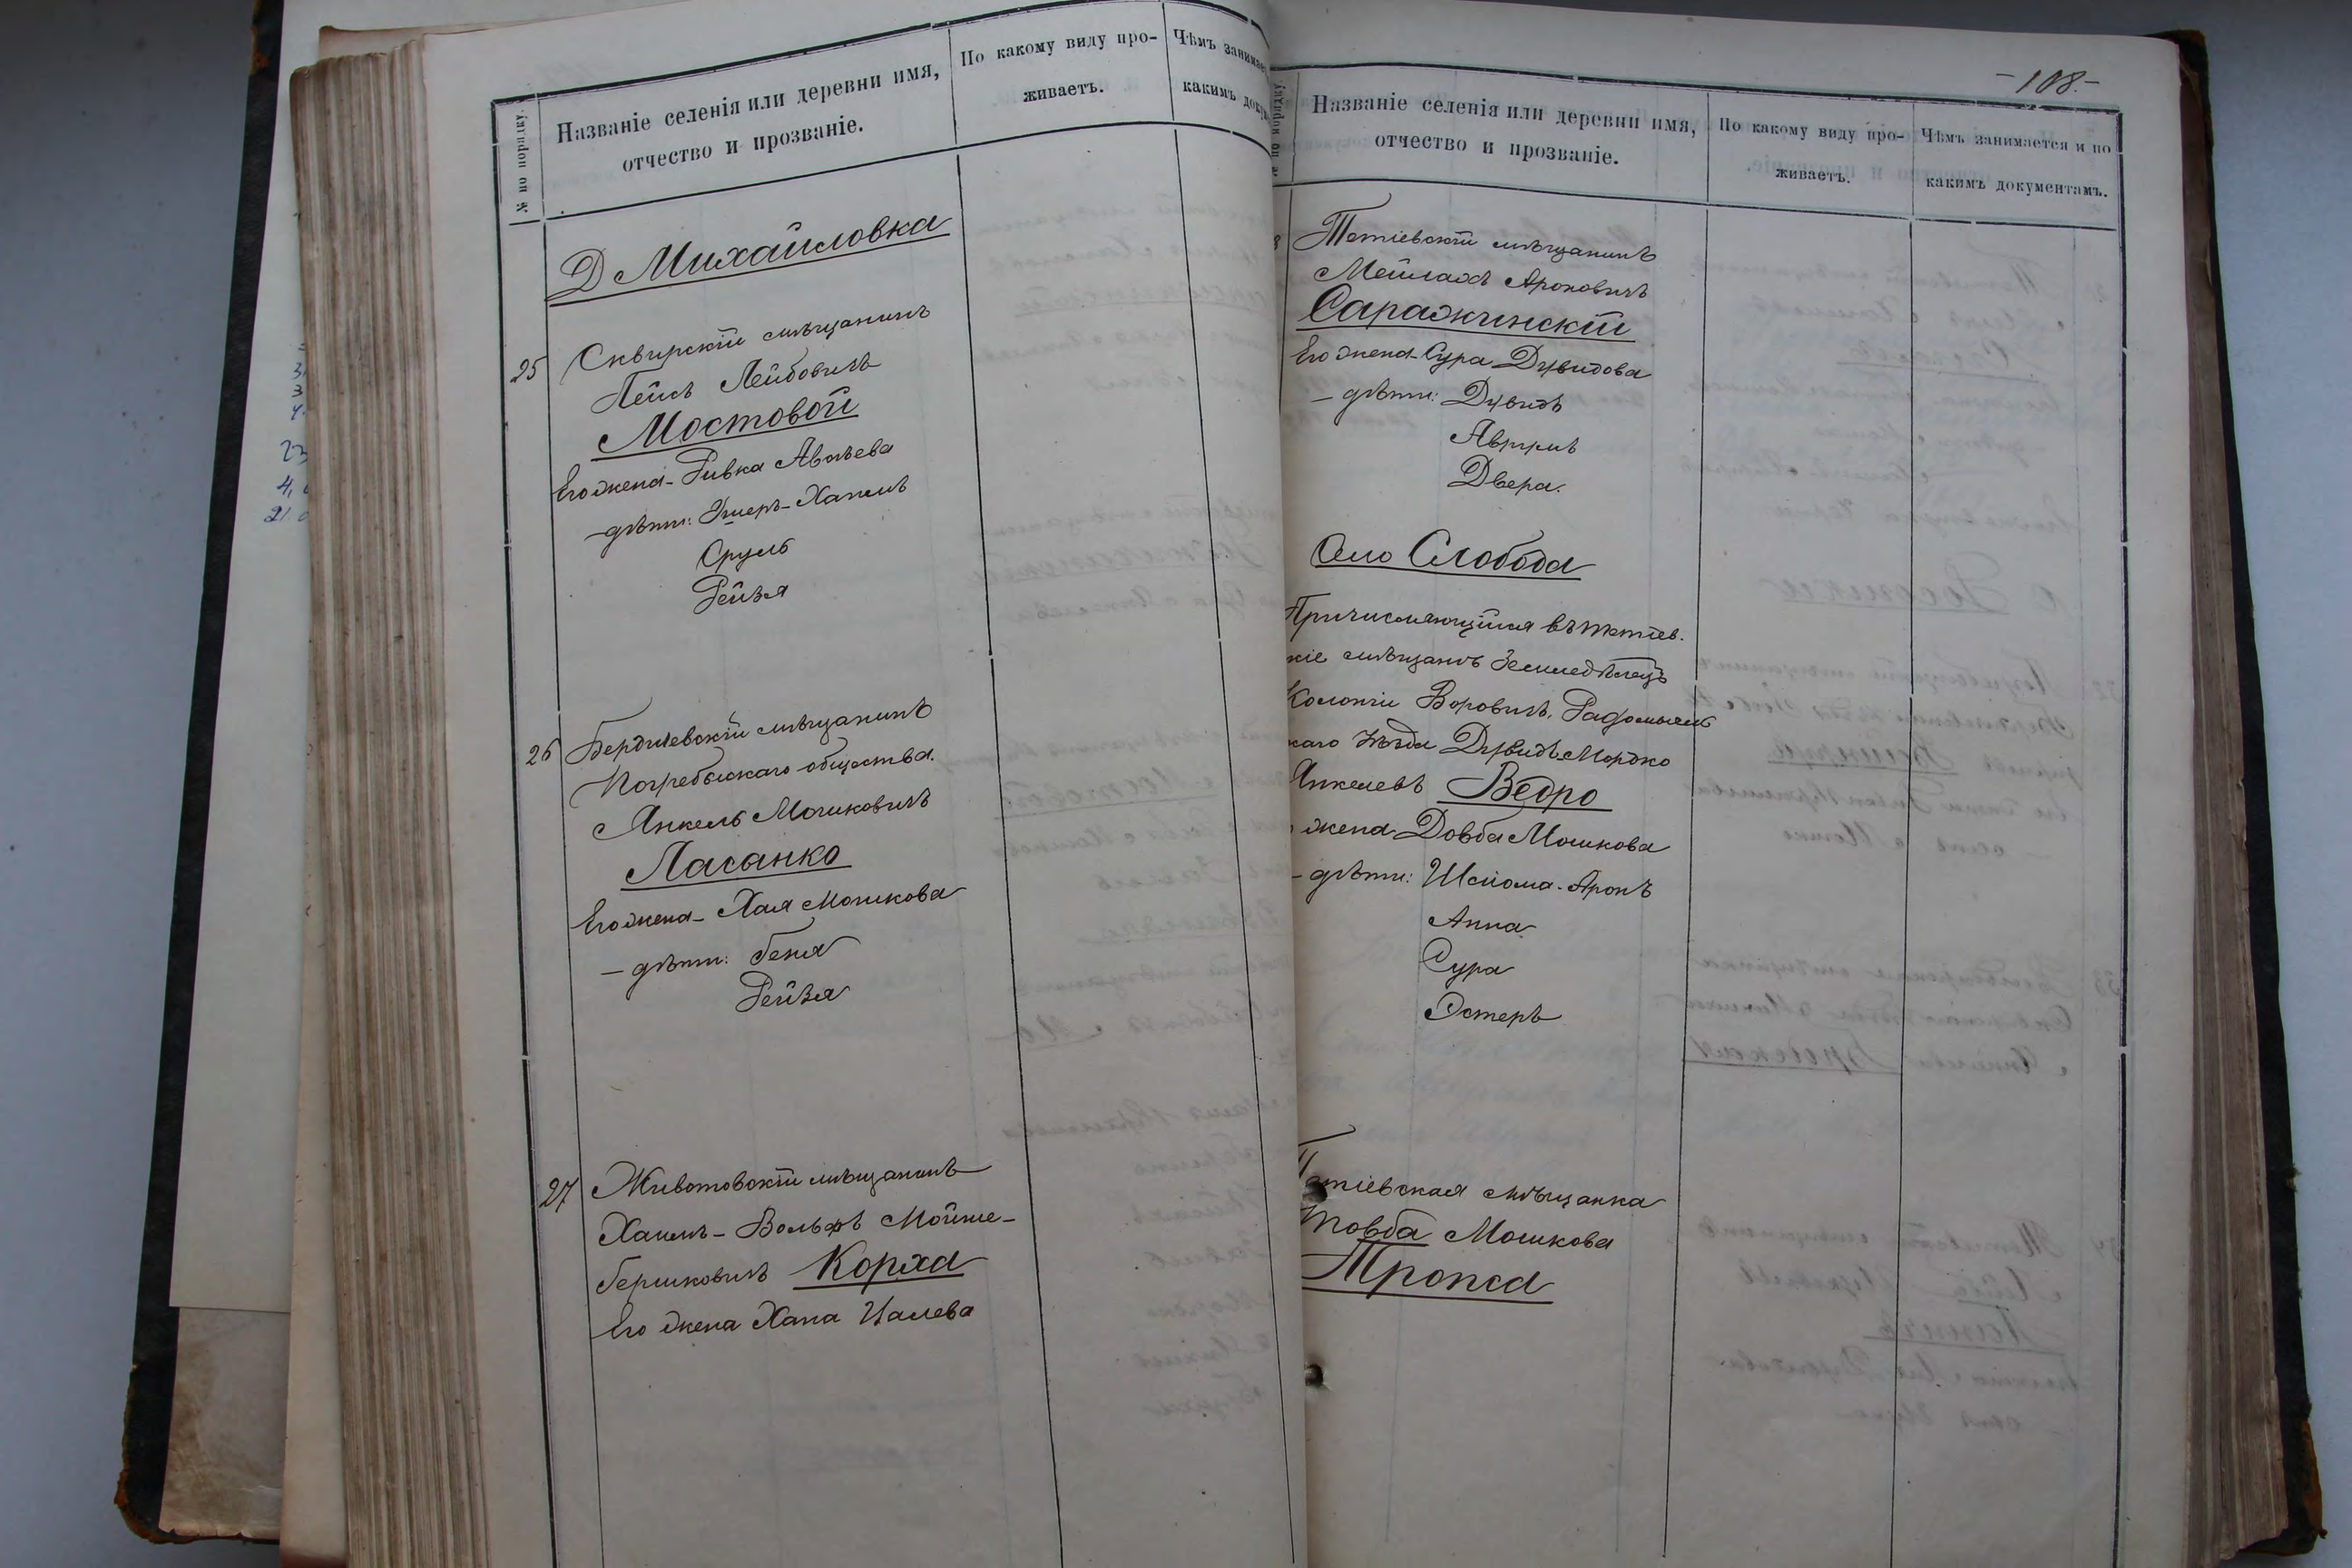 № по порядку
Названіе селенія или деревни имя,
отчество и прозваніе.
По какому виду про-
живаетъ.
Чѣмъ занимает
какимъ доку
Д Михайловка
25 Сквирскій мѣщанинъ
Лейбовичъ
Мостовой
Его жена - Ривка Авалѣева
- дѣти: Эшеръ - Хаимъ
Сруль
Рейзя
26 Бердичевскій мѣщанинъ
Погребыскаго общества.
Янкель Мошковичъ
Ласанко
Его жена - Хая Мошкова
- дѣти: Беня
Рейзя
27 Животовскій мѣщанинъ
Хаимъ - Вольфъ Мойше-
Гершковичъ Корха
Его жена Хана Цалева
- 108. -
№ по порядку
Названіе селенія или деревни имя,
отчество и прозваніе.
По какому виду про-
живаетъ.
Чѣмъ занимается и по
какимъ документамъ.
8 Тетіевскій мѣщанинъ
Мейлахъ Ароновичъ
Саражинскій
Его жена - Сура Дувидова
- дѣти: Дувидъ
Аврумъ
Двера.
Село Слобода
Причисляющійся въ тетіев.
кіе мѣщанъ Земледѣлецъ
Колоніи Воровичъ, Радомысль
каго уѣзда Дувидъ Мордко
Янкелевъ Ведро
жена Довба Мошкова
- дѣти: Шлома - Аронъ
Анна
Сура
Эстеръ
Тетіевская мѣщанка
Товба Мошкова
Тропса